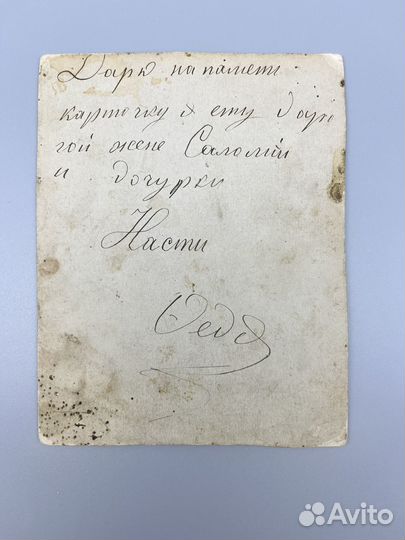 Дарю на память
карточку я ету доро
гой жене Саломіи
и дочурки
Насти
Avito